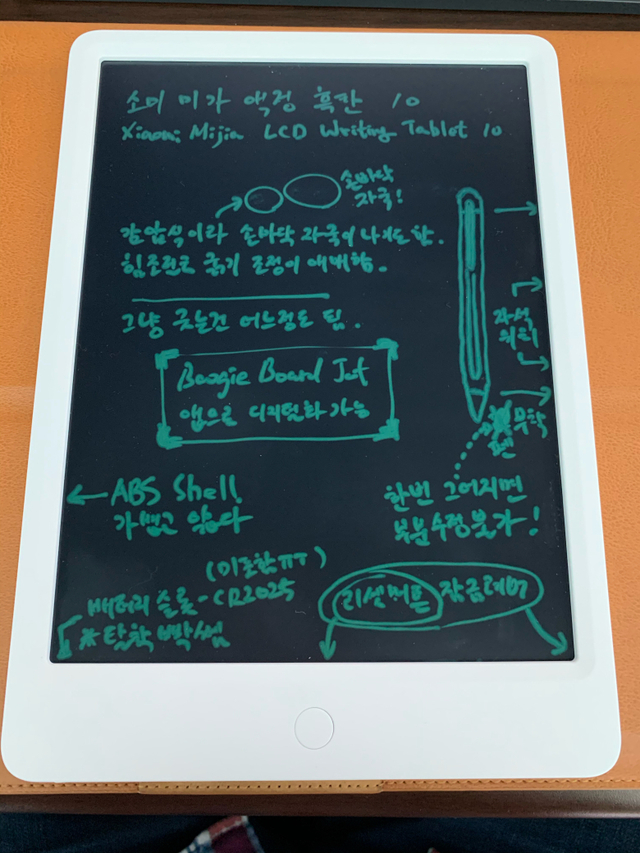 소미 미가 액정 흑판 10
Xiaomi Mijia LCD Writing Tablet 10
손바닥
자국!
감압식이라 손바닥 자국이 나기도 함.
힘조절로 굵기 조정이 애매함.
그냥 긋는건 어느정도 됨.
자석
위치
Boogie Board Jot
앱으로 디지털화 가능
무학
펜
ABS Shell
가볍고 얇다
한번 그어지면
부분수정불가!
(미포함ㅠㅠ)
배터리 슬롯-CR2025
*탈착 빡쎔
리셋버튼 잠금레버